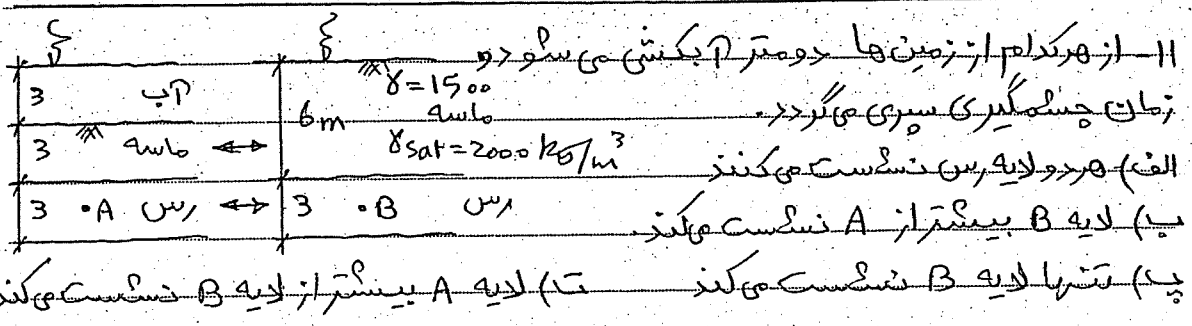 ۱۱- از هرکدام از زمین‌ها دو متر آبکشی می‌شود و
زمان چشمگیری سپری می‌گردد.
الف) هر دو لایه رس نشست می‌کنند
ب) لایه B بیشتر از A نشست می‌کند.
پ) تنها لایه B نشست می‌کند ت) لایه A بیشتر از لایه B نشست می‌کند
3 آب
3 ماسه
3 •A رس
γ=1500
6m ماسه
γsat=2000 kg/m³
3 •B رس